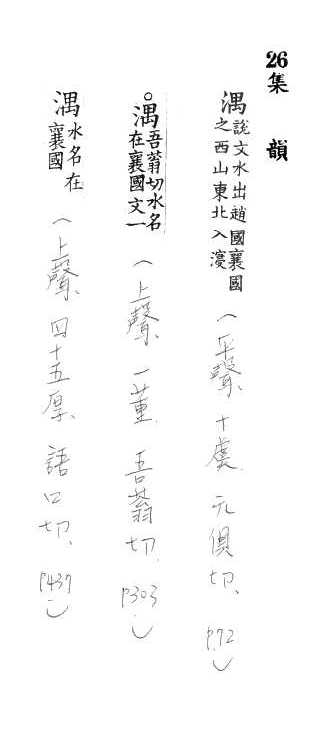 26集 韻
湡說文水出趙國襄國
之西山東北入寖
(平聲、十虞 元俱切、P.72)
○湡吾蓊切水名
在襄國文一
(上聲、一董 吾蓊切、P303)
湡水名在
襄國
(上聲、四十五厚、語口切、P437)